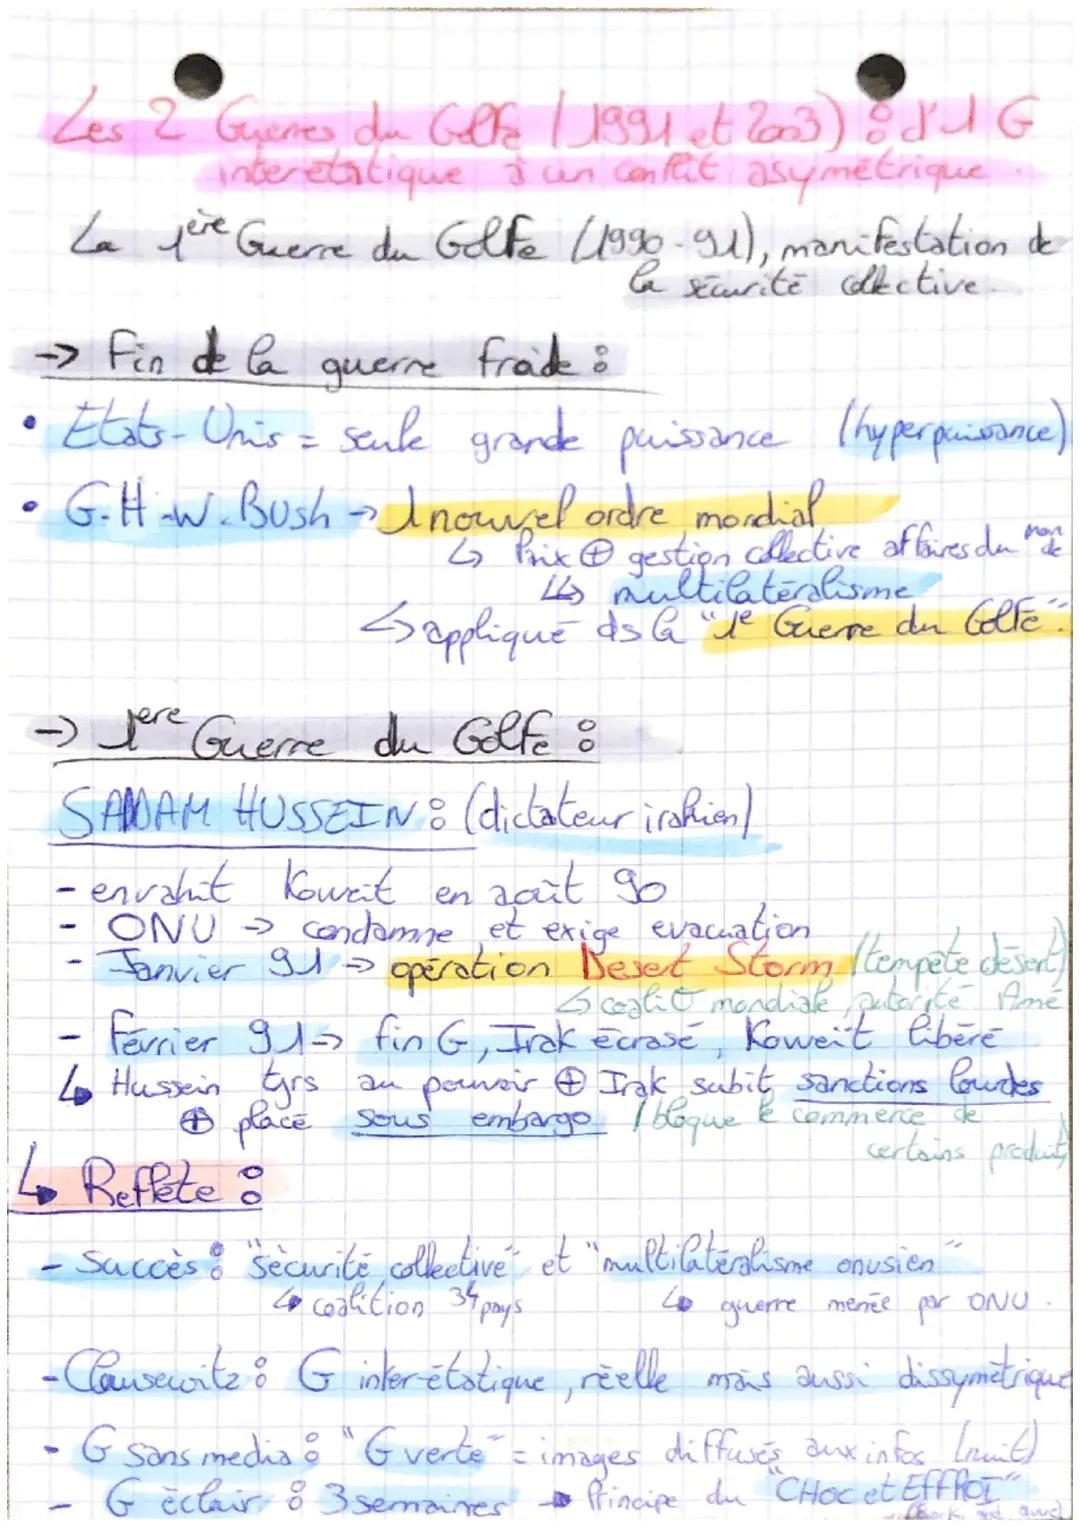 Les 2 Guerres du Golfe (1991 et 2003) : d'1 G
interetatique à un conflit asymétrique.
La 1ère Guerre du Golfe (1990-91), manifestation de
la sécurité collective.
-> Fin de la guerre froide :
• Etats-Unis = seule grande puissance (hyperpuissance)
• G.H.W.BUsh -> 1 nouvel ordre mondial
↳ Prix ⊕ gestion collective affaires du monde
↳ multilatéralisme
↳ appliqué ds la "1e Guerre du Golfe".
-> 1ère Guerre du Golfe :
SADDAM HUSSEIN : (dictateur irakien)
- envahit Koweit en août 90
- ONU -> condamne et exige evacuation
- Janvier 91 -> opération Desert Storm (tempête désert)
↳ coalit° mondiale autorité Amé
- Février 91 -> fin G, Irak écrasé, Koweït libéré
↳ Hussein tjrs au pouvoir ⊕ Irak subit sanctions lourdes
⊕ placé sous embargo (bloque le commerce de
certains produits)
↳ Reflète :
- Succès : "sécurité collective" et "multilatéralisme onusien"
↳ coalition 34 pays ↳ guerre menée par ONU.
- Clausewitz : G inter-étatique, réelle mais aussi dissymétrique
- G sans media : "G verte" = images diffusés aux infos (nuit)
- G éclair : 3 semaines -> Principe du "CHOC et EFFROI"